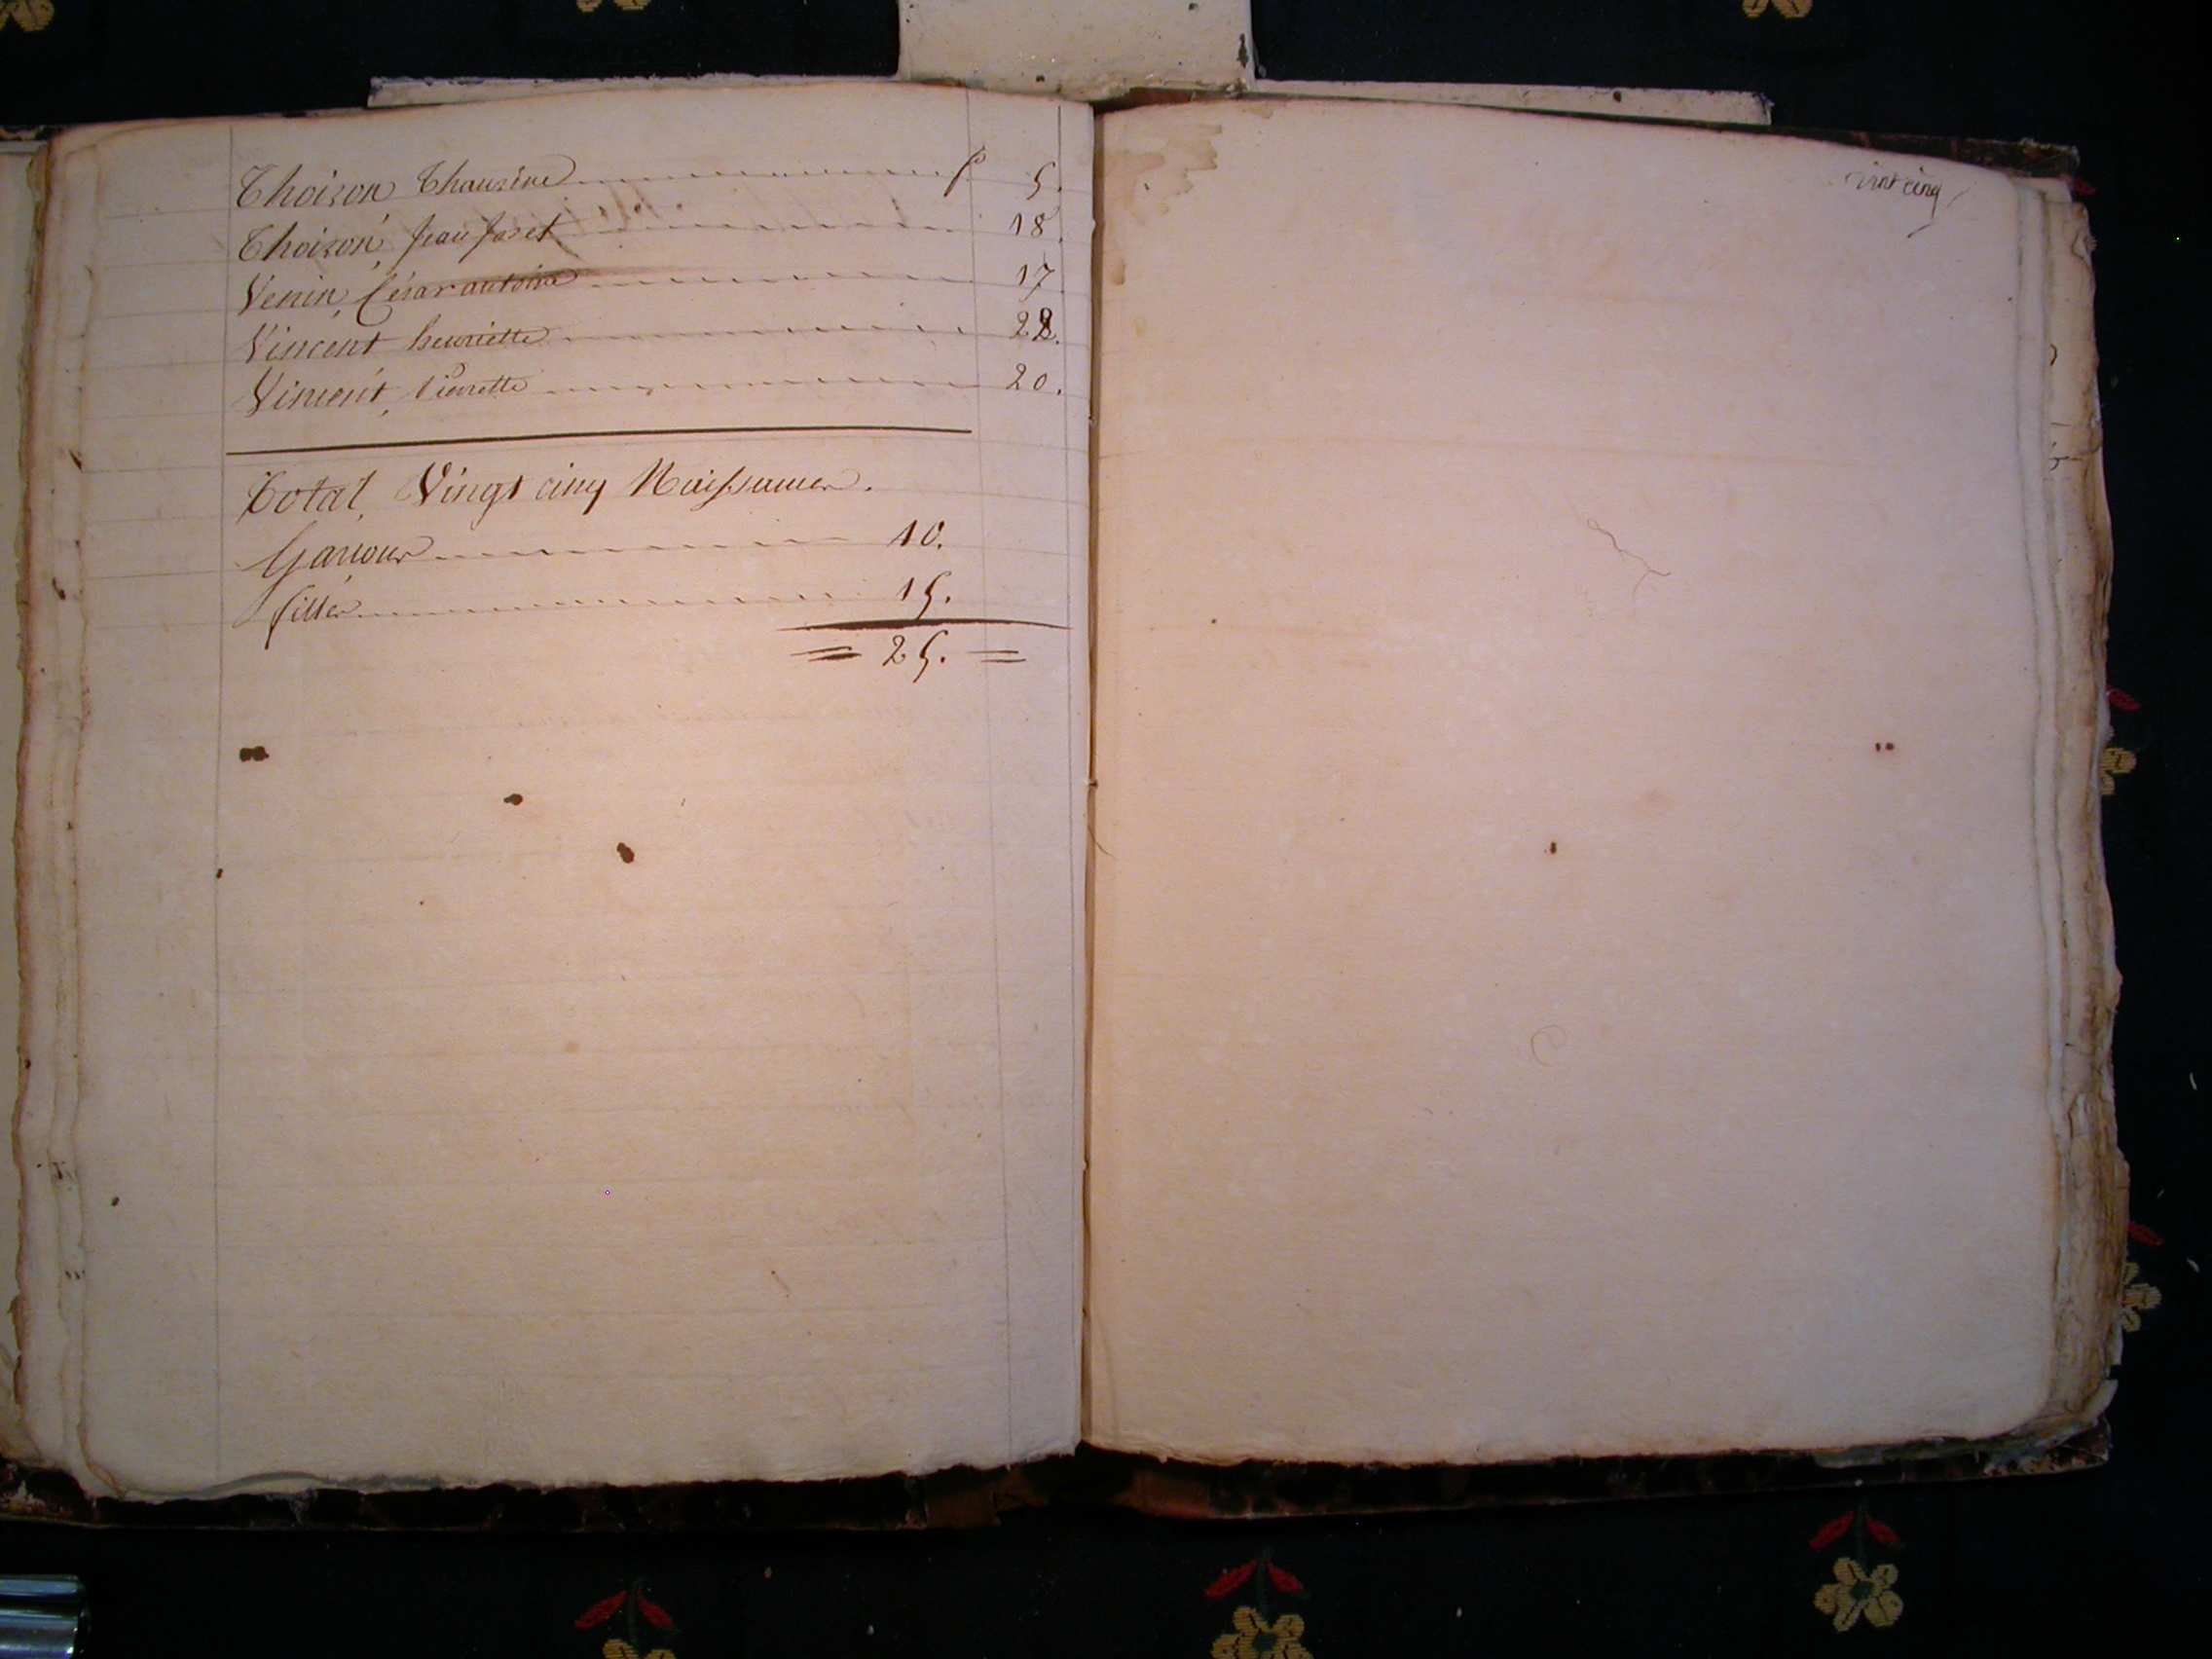 Thoison Thaurine f° 5.
Thoison, Jean Jaset 18.
Venin, César antoine 17
Vincent henriette 22.
Vincent, Pierrette 20.
Total, Vingt cinq Naissances.
Garcons 10.
filles 15.
= 25. =
vint cinq